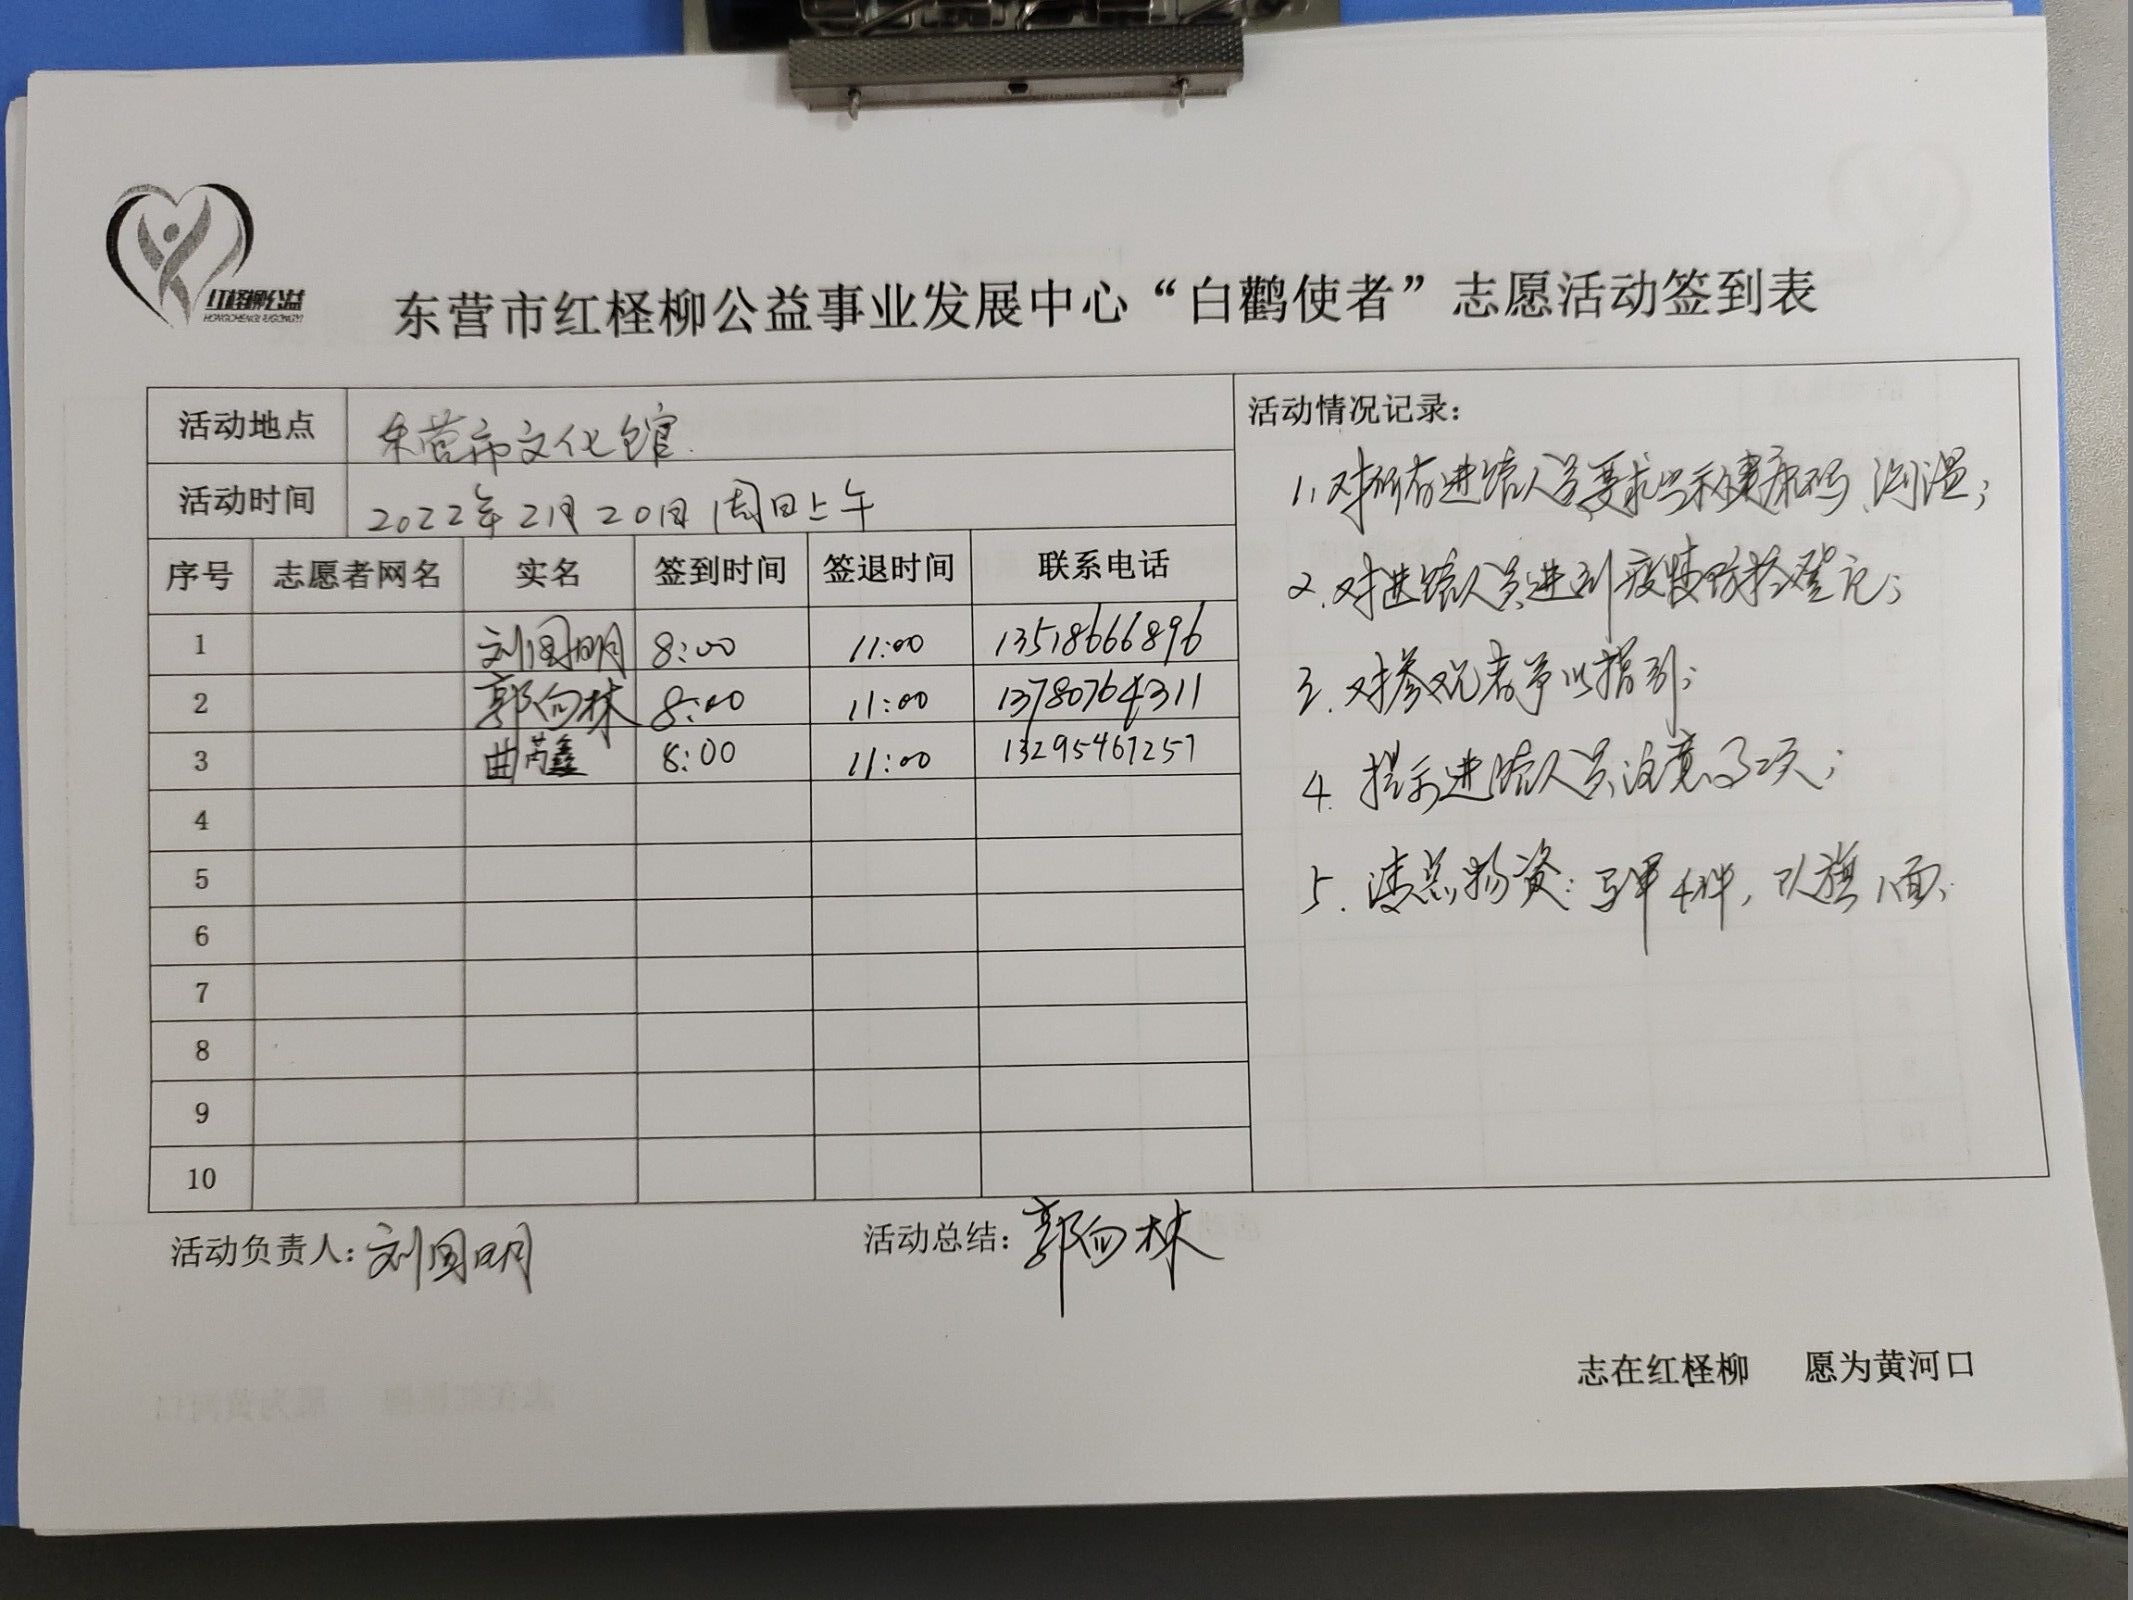 红柽柳公益
HONGCHENGLIUGONGYI
东营市红柽柳公益事业发展中心“白鹳使者”志愿活动签到表
活动地点 东营市文化馆
活动时间 2022年2月20日 周日上午
序号 志愿者网名 实名 签到时间 签退时间 联系电话
1 刘国明 8:00 11:00 13518666896
2 郭向林 8:00 11:00 13780764311
3 曲芮鑫 8:00 11:00 13295467257
4
5
6
7
8
9
10
活动情况记录：
1、对所有进馆人员要求出示健康码、测温；
2、对进馆人员进行疫情防控登记；
3、对参观者予以指引；
4、提示进馆人员注意
5、清点物资：马甲4件，队旗1面、
活动负责人：刘国明 活动总结：郭向林
志在红柽柳 愿为黄河口